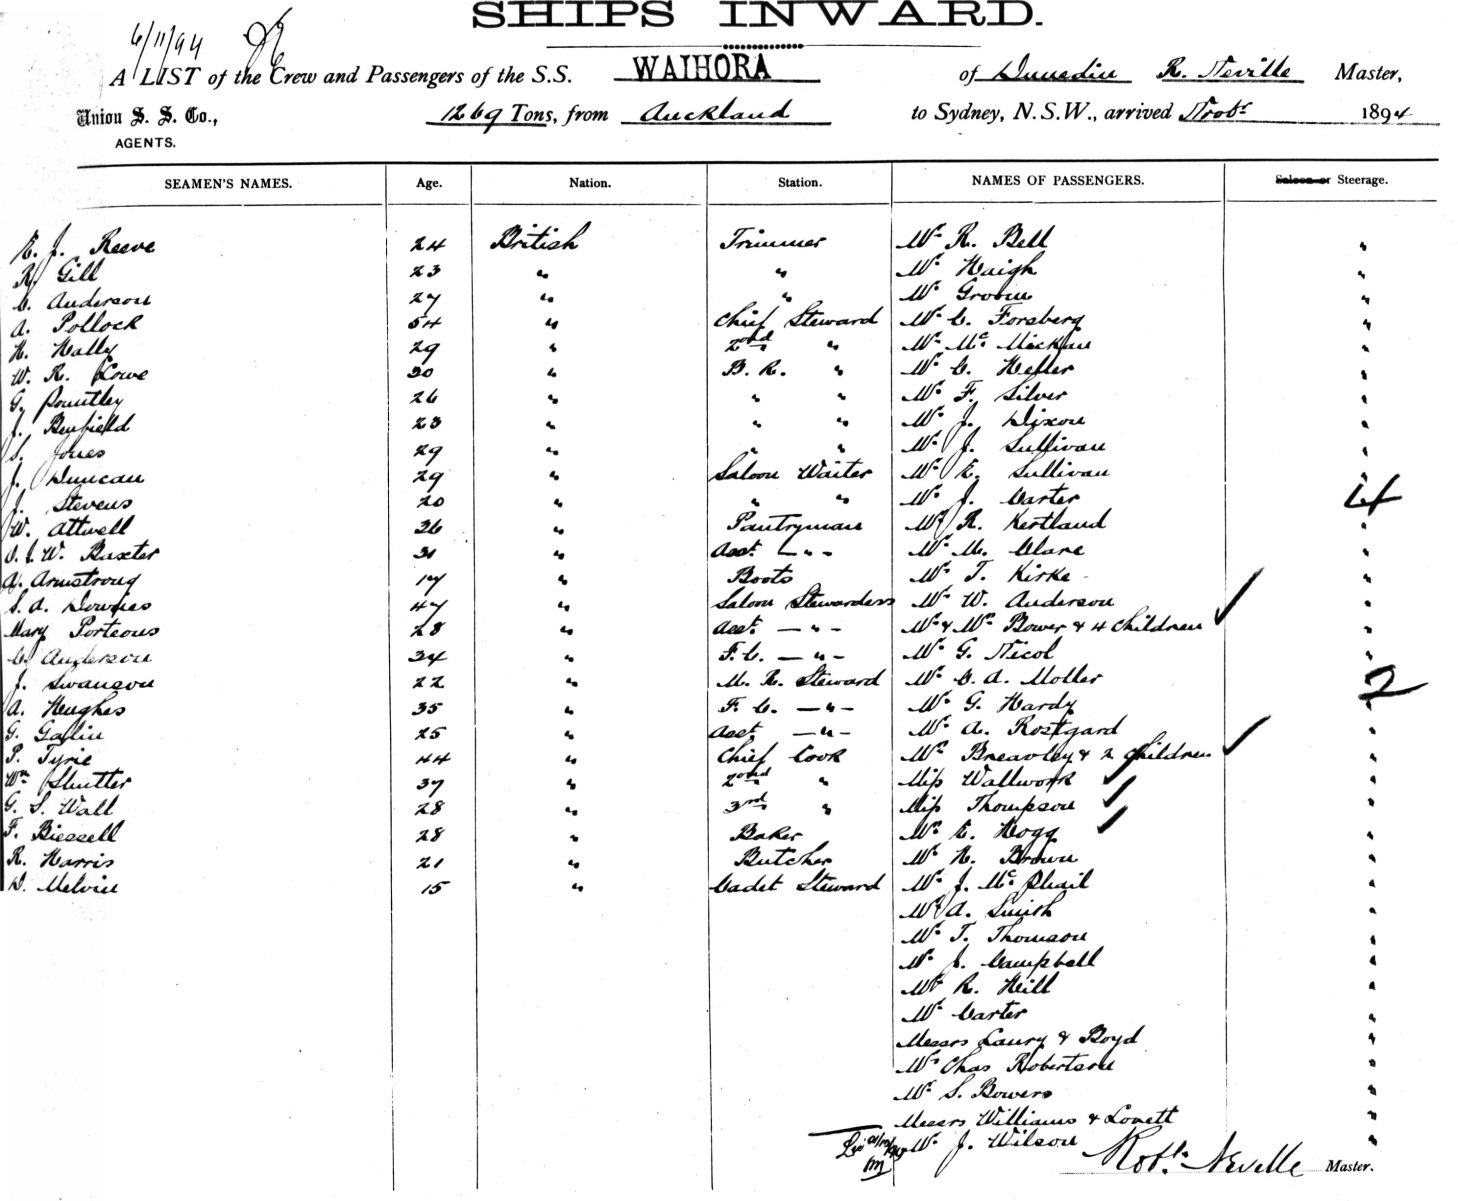 SHIPS INWARD.
6/11/94
A LIST of the Crew and Passengers of the S.S. WAIHORA of Dunedin R. Neville Master,
Union S. S. Co., AGENTS. 1269 Tons, from Auckland to Sydney, N.S.W., arrived Novr 1894
SEAMEN'S NAMES. Age. Nation. Station. NAMES OF PASSENGERS. Saloon or Steerage.
E. J. Reeve 24 British Trimmer Mr. R. Bell "
R. Gill 23 " " Mr. Haigh "
C. Anderson 27 " " Mr. Groom "
A. Pollock 54 " Chief Steward Mr. C. Forsberg "
H. Hally 29 " 2nd " Mr. Mc "
W. R. Lowe 30 " B. R. " Mr. C. Heller "
G. Pountley 26 " " " Mr. F. Silver "
J. Benfield 23 " " " Mr. J. Dixon "
S. Jones 29 " " " Mr. J. Sullivan "
J. Duncan 29 " Saloon Waiter Mr. E. Sullivan "
J. Stevens 20 " " " Mr. J. Carter 4
W. Attwell 36 " Pantryman Mr. R. Kertland "
W. Baxter 31 " Asst. — " — Mr. M. Clare "
A. Armstrong 17 " Boots Mr. T. Kirke "
S. A. Downes 47 " Saloon Stewardess Mr. W. Anderson "
Mary Porteous 28 " Asst. — " — Mr. & Mrs. Bower & 4 Children "
C. Anderson 34 " F. C. — " — Mr. G. Nicol "
J. Swanson 22 " M. R. Steward Mr. C. A. Moller 2
A. Hughes 35 " F. C. — " — Mr. G. Hardy "
G. 25 " Asst — " — Mr. A. Rostgard "
P. Tyrie 44 " Chief Cook Mrs. Brearley & 2 Children "
Wm Shutter 37 " 2nd " Miss Wallwork "
G. S. Wall 28 " 3rd " Miss Thompson "
F. Biessell 28 " Baker Mrs. E. Hogg "
R. Harris 21 " Butcher Mr. H. Brown "
D. Melvin 15 " Cadet Steward Mr. J. McPhail "
Mr. A. Smith "
Mr. T. Thomson "
Mr. J. Campbell "
Mr. R. Heill "
Mr. Carter "
Messrs Laury & Boyd "
Mr. Chas Robertson "
Mr. S. Bowers "
Messrs Williams & Lovett "
Mr. J. Wilson "
Robt. Neville Master.